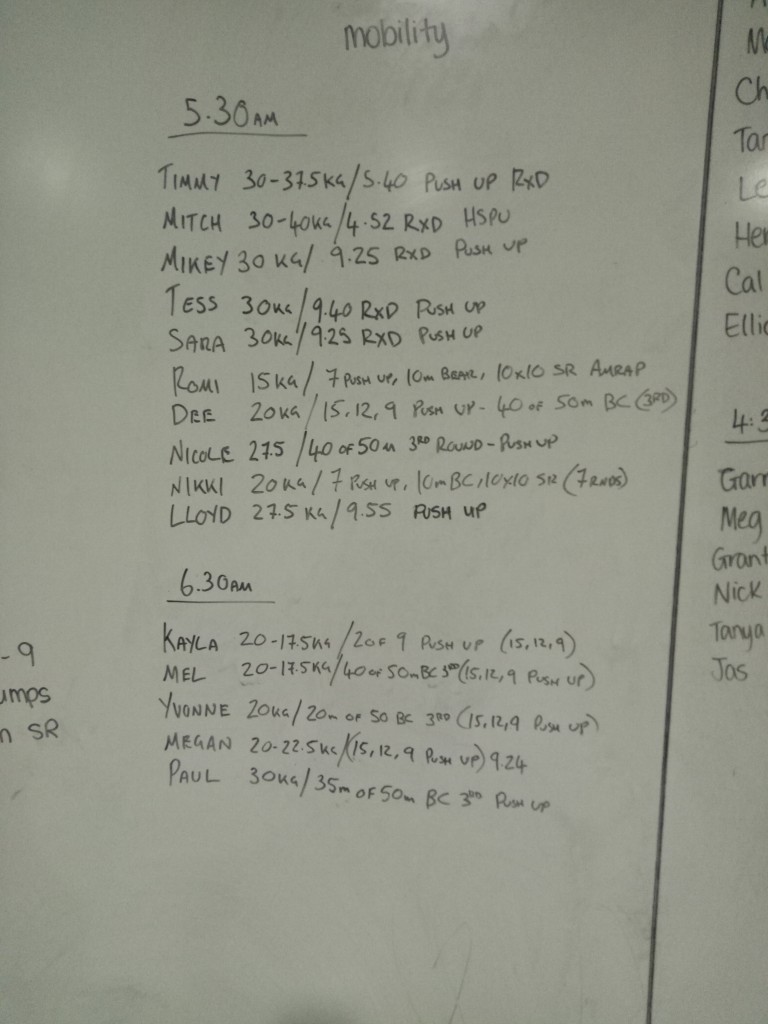 mobility
5.30AM
TIMMY 30-37.5KG/5.40 PUSH UP RXD
MITCH 30-40KG/4.52 RXD HSPU
MIKEY 30 KG/ 9.25 RXD PUSH UP
TESS 30KG/9.40 RXD PUSH UP
SARA 30KG/9.25 RXD PUSH UP
ROMI 15KG/ 7 PUSH UP, 10m BEAR, 10x10 SR AMRAP
DEE 20KG/15,12,9 PUSH UP- 40 OF 50m BC (3RD)
NICOLE 27.5 /40 OF 50m 3RD ROUND-PUSH UP
NIKKI 20KG/7 PUSH UP, 10m BC, 10x10 SR (7 RNDS)
LLOYD 27.5 KG/9.55 PUSH UP
6.30AM
KAYLA 20-17.5KG/2 OF 9 PUSH UP (15,12,9)
MEL 20-17.5KG/40 OF 50m BC 3RD (15,12,9 PUSH UP)
YVONNE 20KG/20m OF 50 BC 3RD (15,12,9 PUSH UP)
MEGAN 20-22.5KG/(15,12,9 PUSH UP) 9.24
PAUL 30KG/35m OF 50m BC 3RD PUSH UP
-9
umps
n SR
M
Ch
Tan
Le
Her
Cal
Ellio
4:3
Garr
Meg
Grant
Nick
Tanya
Jas